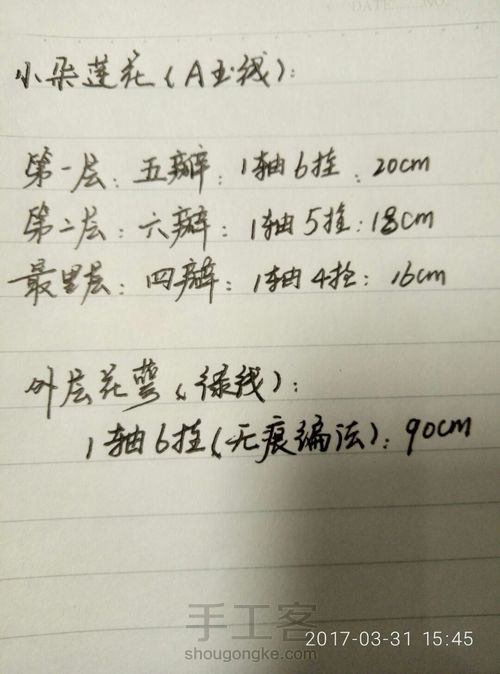 DATE......NO.
小朵莲花(A玉线):
第一层:五瓣:1轴6挂:20cm
第二层:六瓣:1轴5挂:18cm
最里层:四瓣:1轴4挂:16cm
外层花萼(绿线):
1轴6挂(无痕编法):90cm
手工客
shougongke.com
2017-03-31 15:45